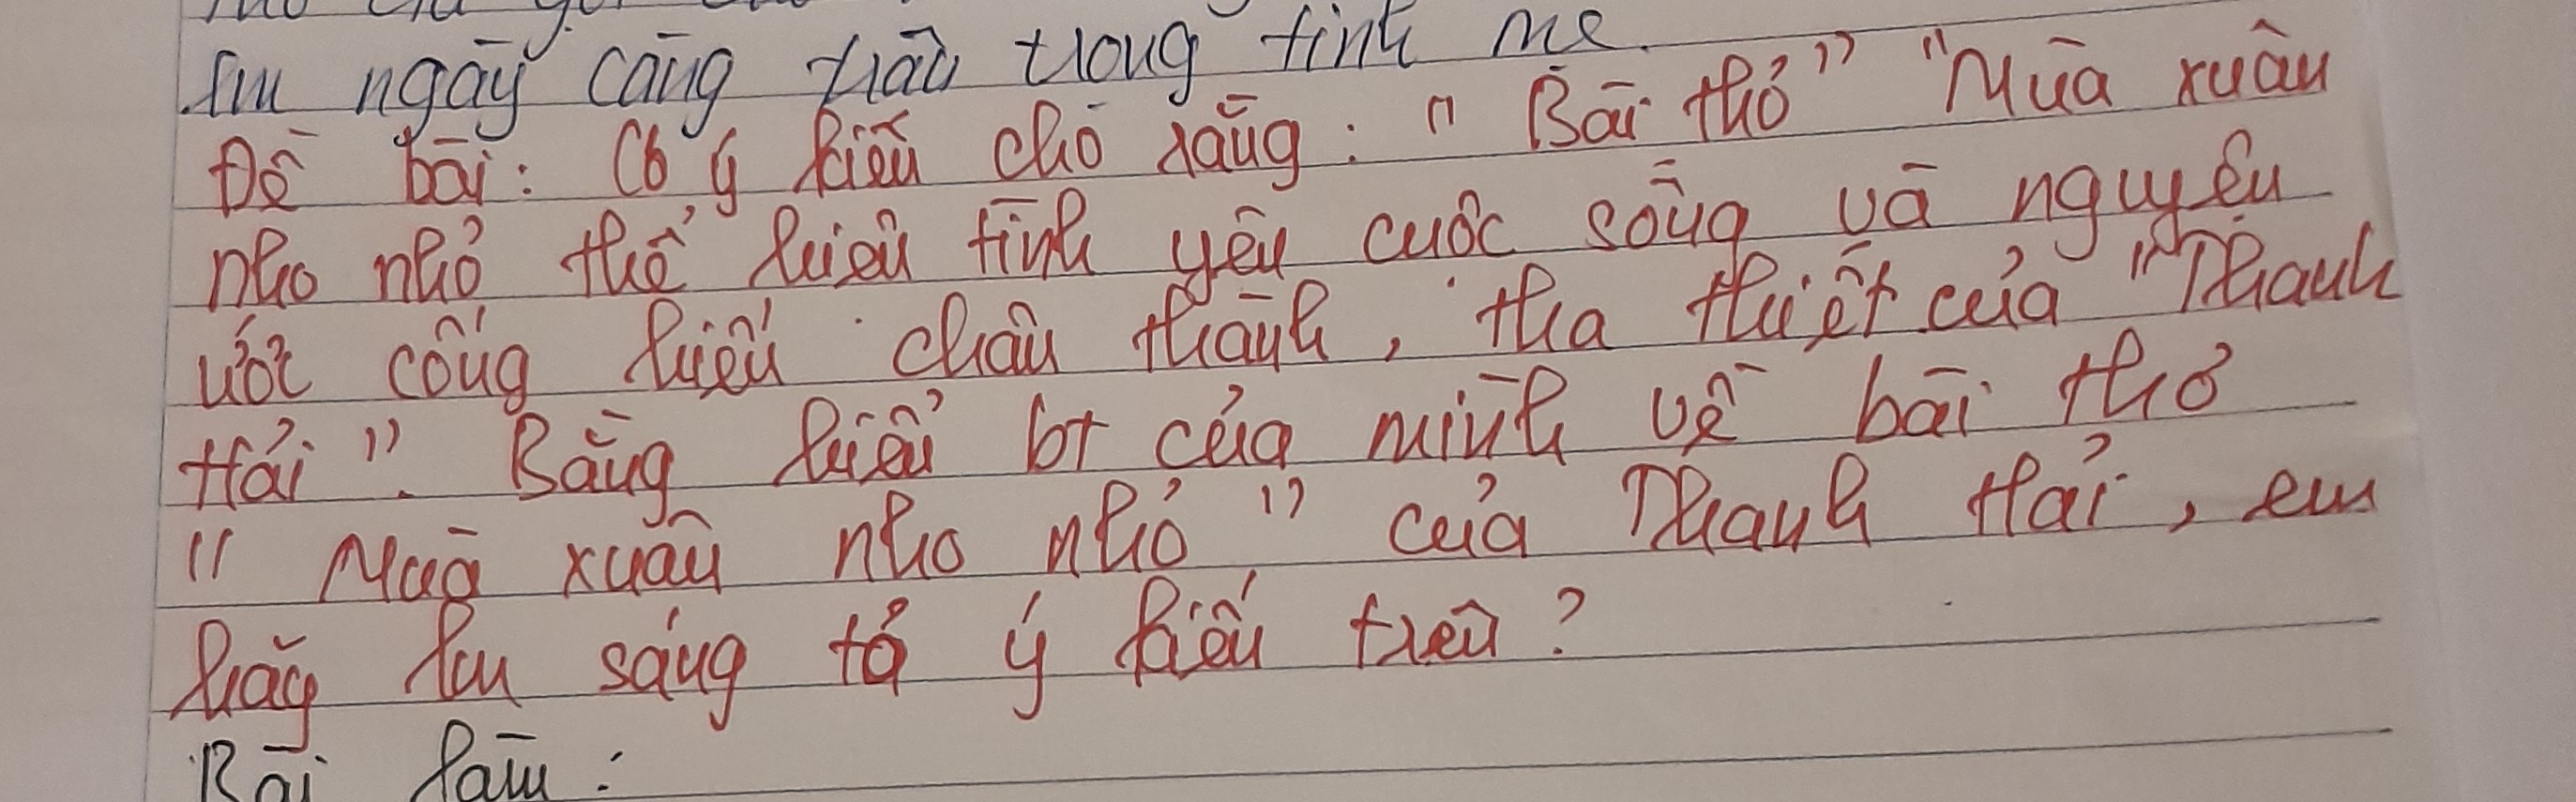 êm ngày càng trân trọng tình mẹ.
Đề bài: Có ý kiến cho rằng: " Bài thơ" "Mùa xuân
nho nhỏ thể hiện tình yêu cuộc sống và nguyện
ước cống hiến chân thành, tha thiết của "Thanh
Hải". Bằng hiểu bt của mình về bài thơ
" Mùa xuân nho nhỏ " của Thanh Hải, em
hãy làm sáng tỏ ý kiến trên?
Bài làm: